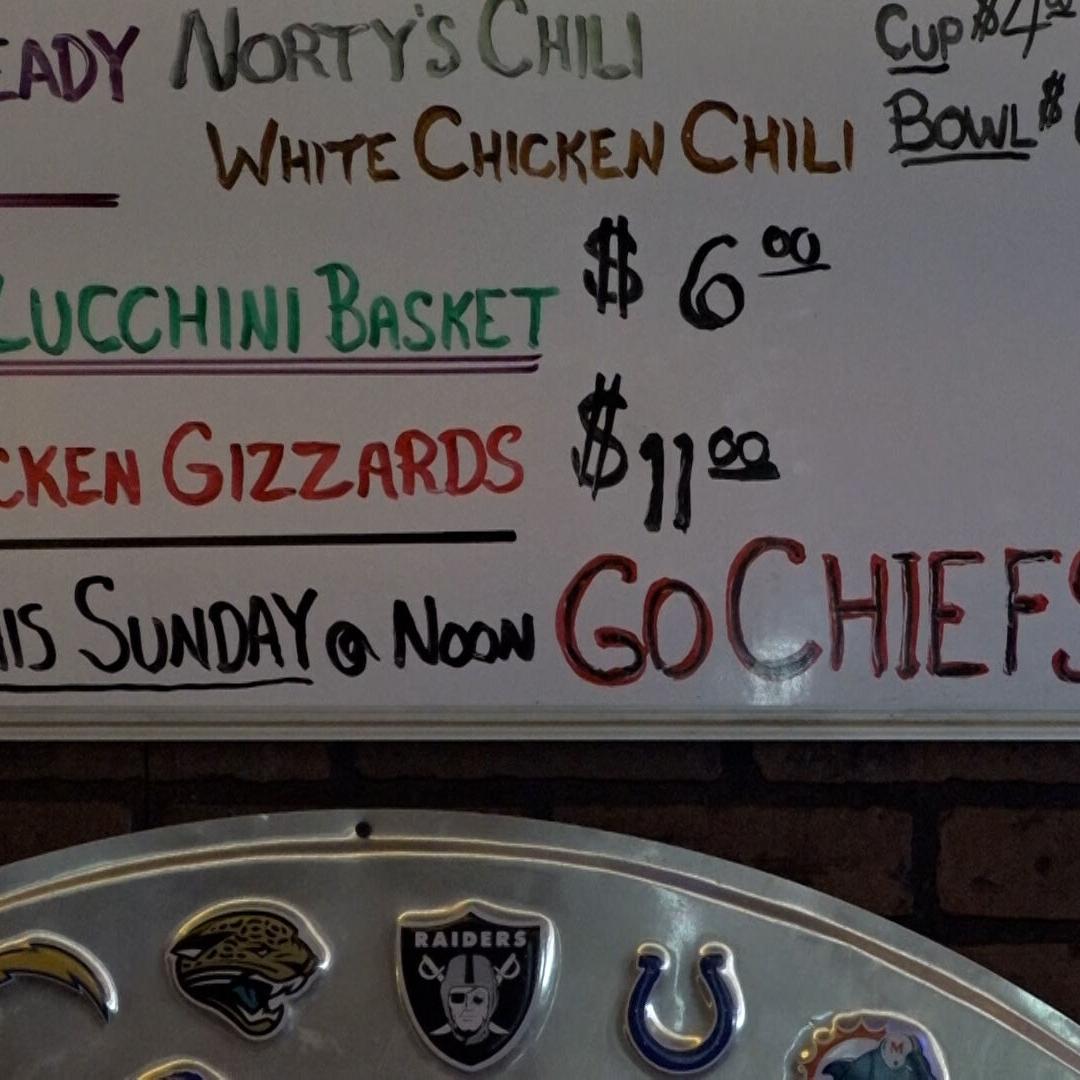 EADY NORTY'S CHILI CUP $4.00
WHITE CHICKEN CHILI BOWL $
ZUCCHINI BASKET $ 6.00
CKEN GIZZARDS $11.00
HIS SUNDAY @ NOON GO CHIEFS
RAIDERS
M